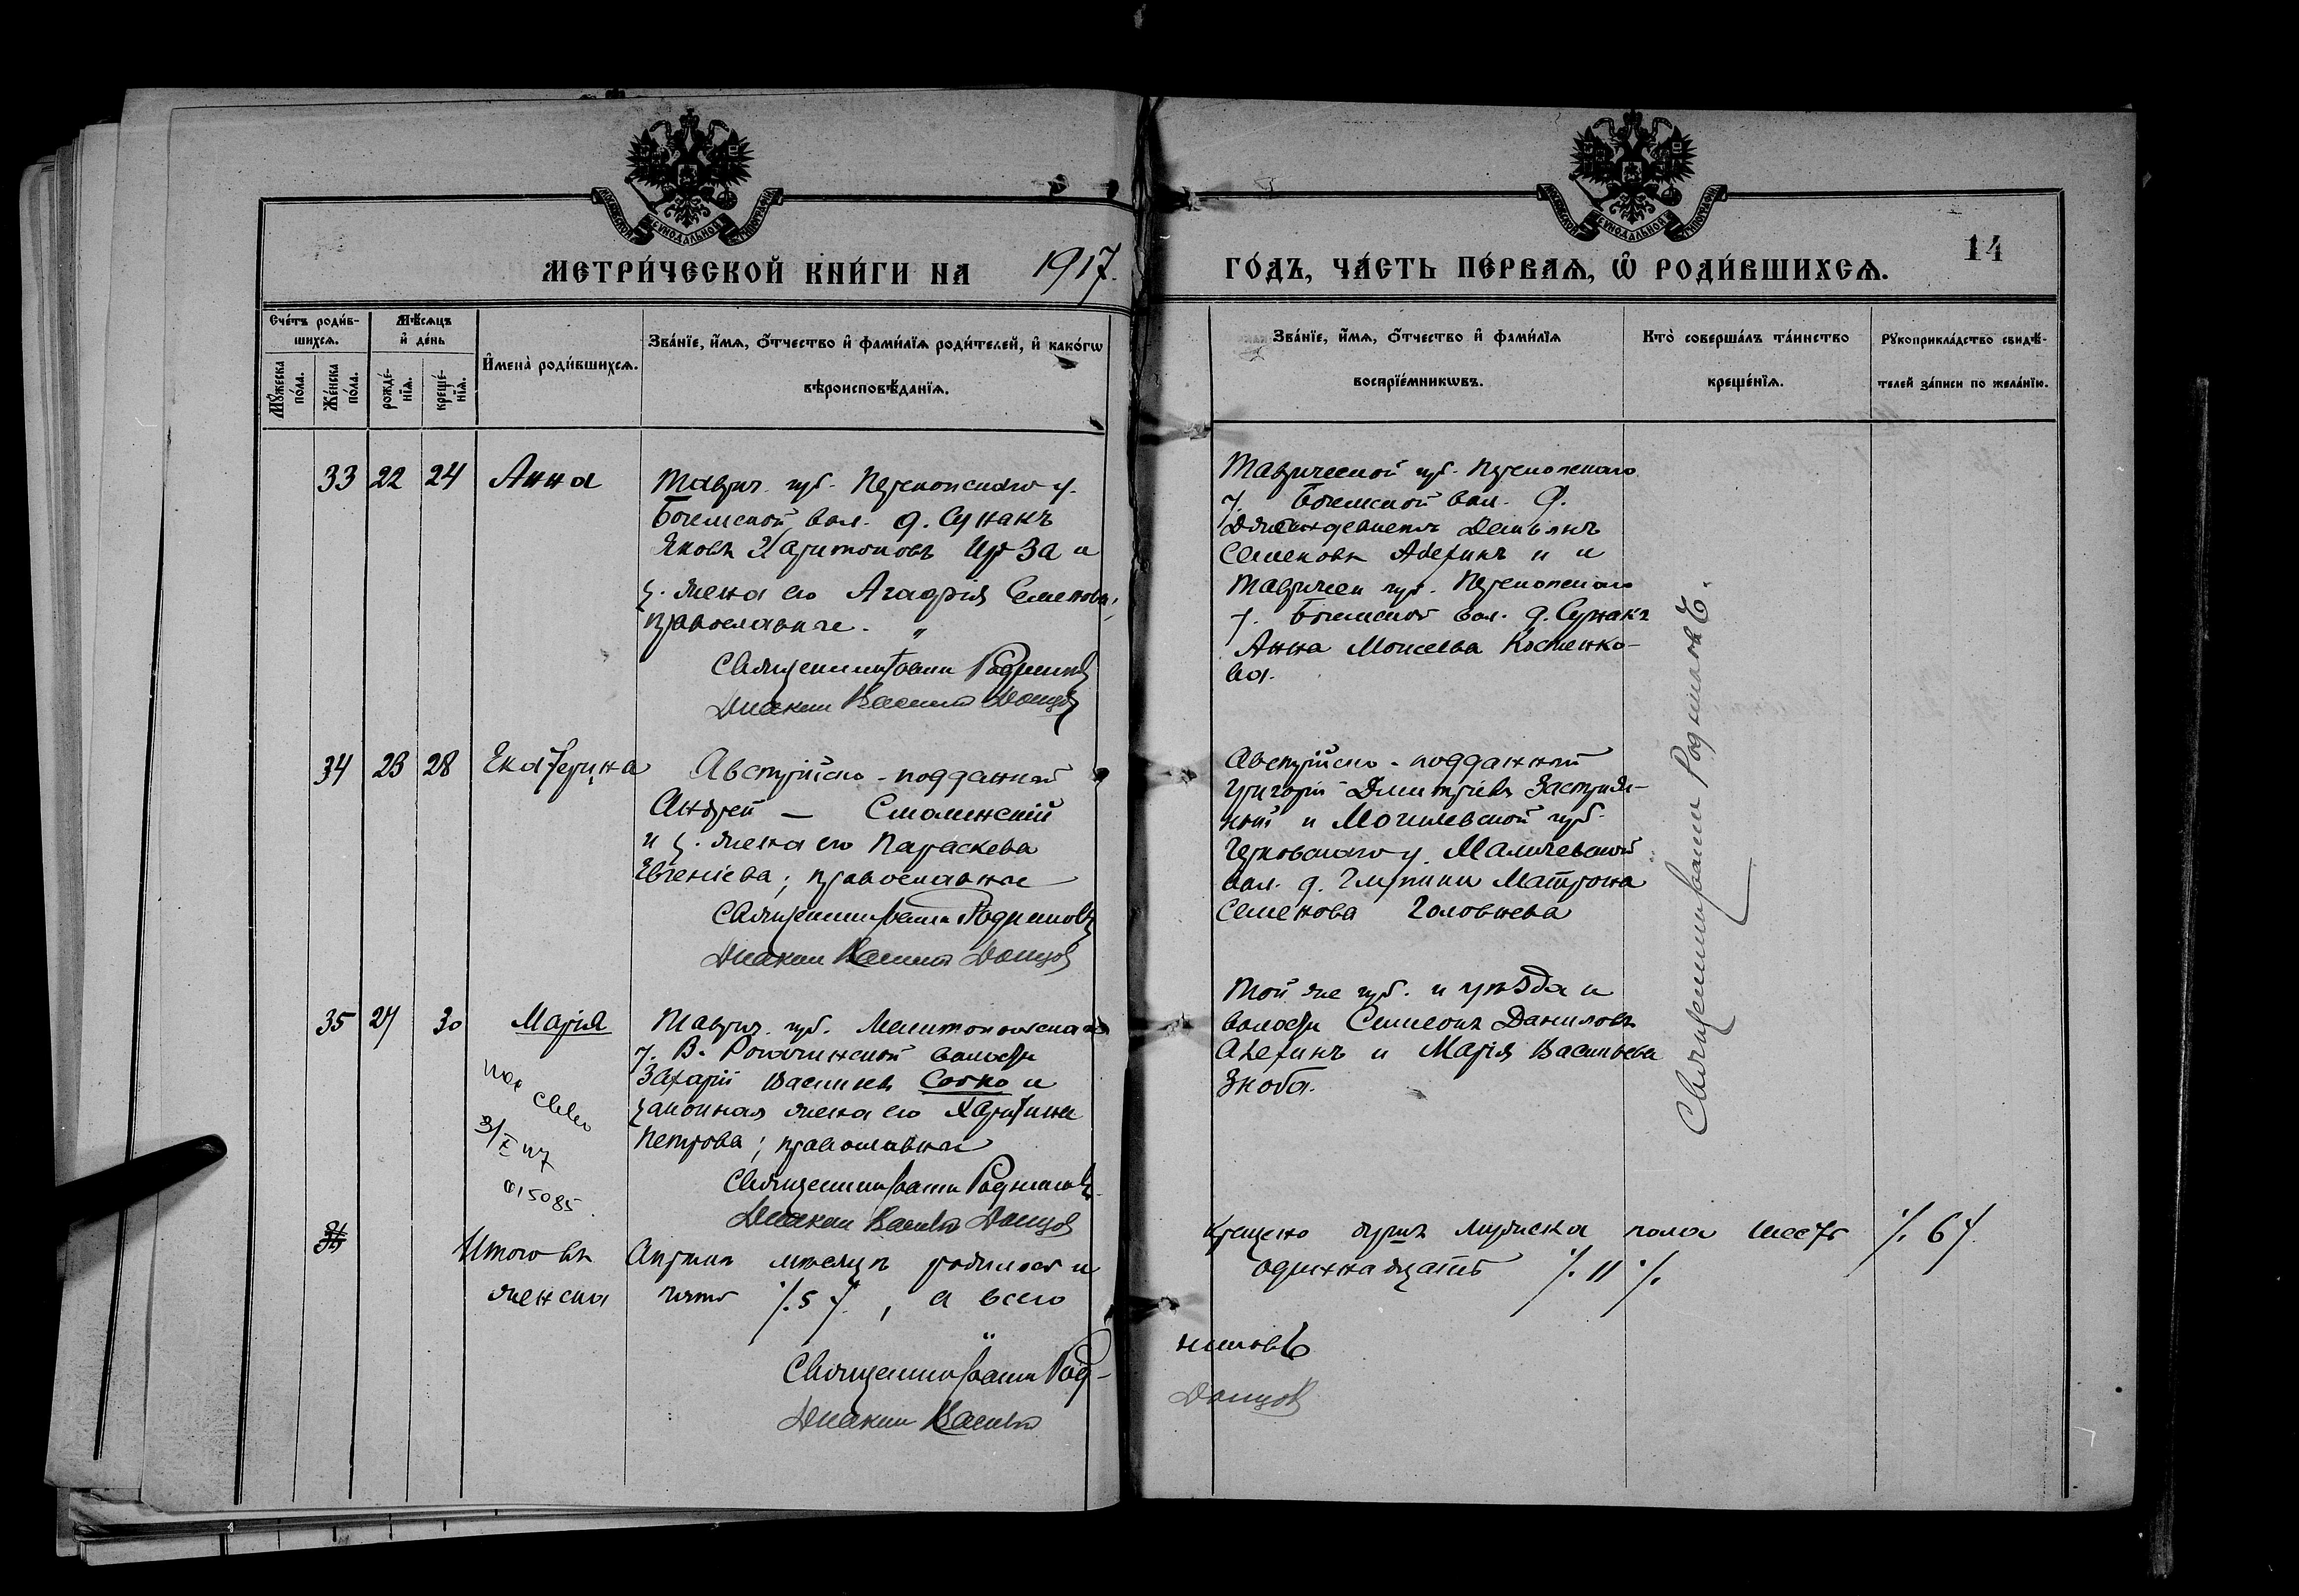 МЕТРИ́ЧЕСКОЙ КНИ́ГИ НА 1917.
ГО́ДЪ, ЧА́СТЬ ПЕ́РВАѦ, Ѽ РОДИ́ВШИХСѦ.
14
Сче́тъ роди́в-
шихсѧ.
Мꙋ́жеска по́ла.
Же́нска по́ла.
Мѣ́сѧцъ и҆ де́нь
рожде́-
нїѧ.
креще́-
нїѧ.
И҆мена̀ роди́вшихсѧ.
Зва́нїе, и҆́мѧ, ѻ҆́тчество и҆ фами́лїѧ роди́телей, и҆ како́гѡ
вѣроисповѣ́данїѧ.
Зва́нїе, и҆́мѧ, ѻ҆́тчество и҆ фами́лїѧ
воспрїе́мникѡвъ.
Кто̀ соверша́лъ та́инство
креще́нїѧ.
Рꙋкоприкла́дство свидѣ́-
телей за́писи по жела́нїю.
33 22 24 Анна
Таврич. губ. Перекопскаго у.
Богемской вол. д. Сунакъ
Яковъ Харитоновъ Ирза и
з. жена его Агафія Семенова,
православные.
Священникъ Іоаннъ Родниковъ
Діаконъ Василій Донцовъ
Таврической губ. Перекопскаго
у. Богемской вол. д.
Демьянъ
Семеновъ Алехинъ и
Тавричес губ. Перекопскаго
у. Богемской вол. д. Сунакъ
Анна Моисеева Костенко-
ва.
34 23 28 Екатерина
Австрійско-подданный
Андрей — Смолинскій
и з. жена его Параскева
Евгеніева; православные
Священникъ Іоаннъ Родниковъ
Діаконъ Василій Донцовъ
Австрійско-подданный
Григорій Димитріевъ
и Могилевской губ.
у.
вол. д. Матрона
Семенова Головнева
35 27 30 Марія
Таврич. губ. Мелитопольскаго
у. В. Рогачинской волости
Захарій Васильевъ Сочко и
законная жена его Харитина
Петрова; православные
Священникъ Іоаннъ Родниковъ
Діаконъ Василій Донцовъ
015085.
Той же губ. и уѣзда и
волости Симеонъ Даниловъ
Алехинъ и Марія Васильева
Зноба.
Священникъ Іоаннъ Родниковъ.
Итого въ Апрѣлѣ мѣсяцѣ родилось и
крещено душъ мужеска пола шесть /. 6 /.
женска пять /. 5 /., а всего
одиннадцать /. 11 /.
Священникъ Іоаннъ Род-
никовъ
Діаконъ Василій
Донцовъ